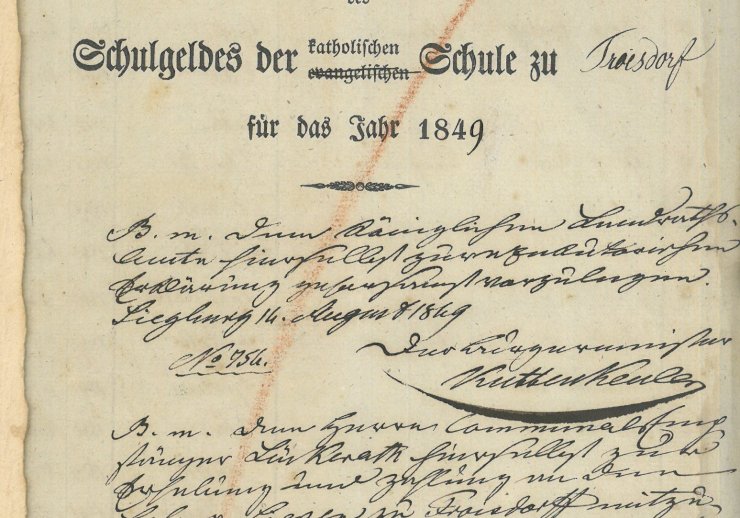 des
Schulgeldes der katholischen evangelischen Schule zu Troisdorf
für das Jahr 1849
B. m. dem Königlichen Landraths-
Amte hierselbst zur exekutorischen
Erklärung gehorsamst vorzulegen.
Siegburg 14. August 1849
No 756.
Der Bürgermeister
B. m. dem Herrn Communal Emp
fänger Lückerath hierselbst zur
Erhebung und Zahlung an den
zu Troisdorff mitzu